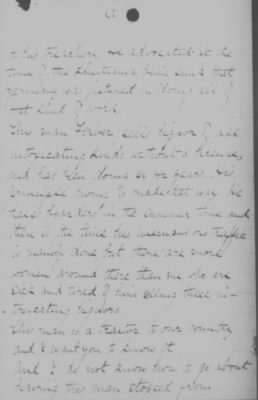 to the teachers, he advocated at the
time of the Lusitania being sunk that
Germany was justified in doing all of
that kind of work.
This man sells liquor of all
intoxicating kinds without a license,
and has been doing so for years. His
business is made that way. He
has boarders in the summer time and
then is the time this traffic
is mainly done but there are more
women around there than me who are
sick and tired of him selling these in-
toxicating liquors.
This man is a traitor to our country
and I want you to know it.
But I do not know how to go about
having this man stopped from